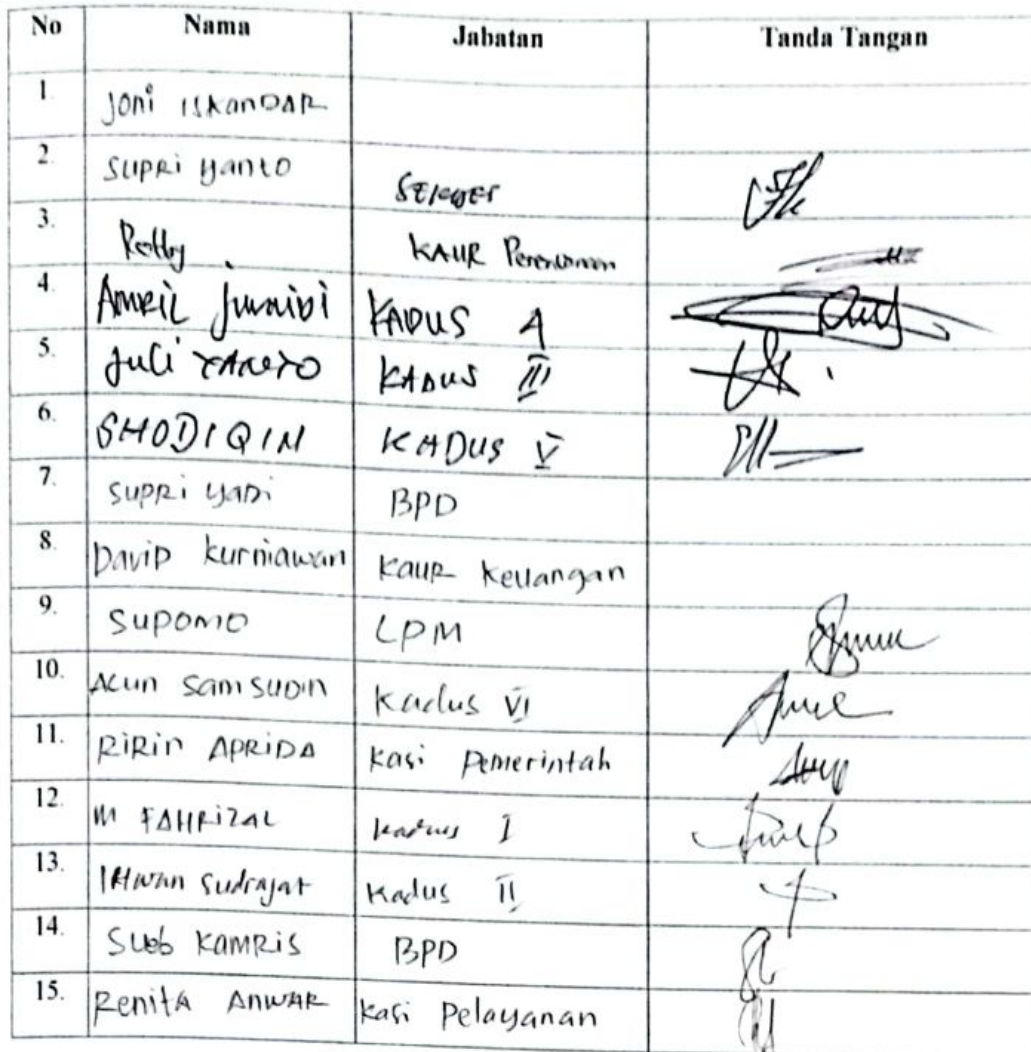 No Nama Jabatan Tanda Tangan
1. Joni Iskandar
2. Supri yanto Sekdes
3. Kaur
4. Amril Junaidi Kadus 4
5. Juli Kadus III
6. SHODIQIN KADUS V
7. Supri yadi BPD
8. David Kurniawan Kaur Keuangan
9. Supomo LPM
10. Acun Samsudin Kadus VI
11. Ririn Aprida Kasi Pemerintah
12. M Fahrizal Kadus I
13. Sudrajat Kadus II
14. Sueb Kamris BPD
15. Renita Anwar Kasi Pelayanan